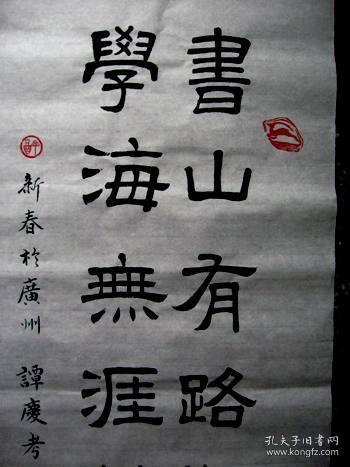 書山有路
學海無涯
新春於廣州 譚慶考
孔夫子旧书网
www.kongfz.com